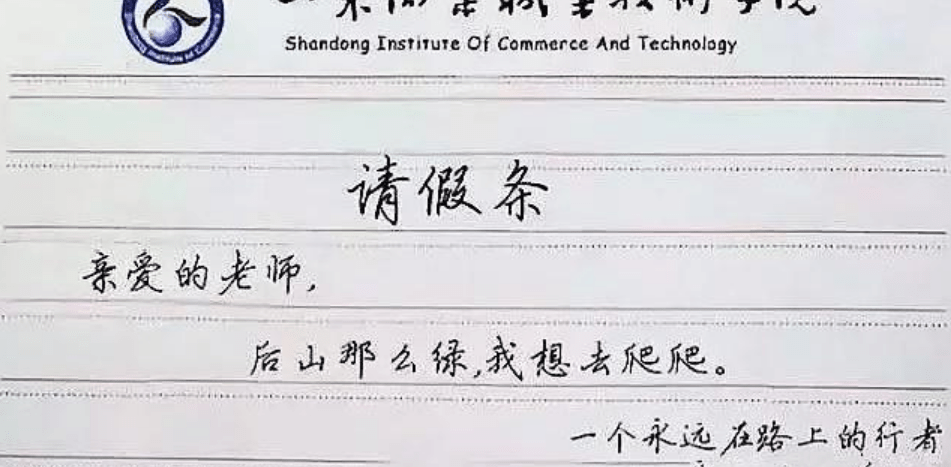 山东商业职业技术学院
Shandong Institute Of Commerce And Technology
请假条
亲爱的老师,
后山那么绿,我想去爬爬。
一个永远在路上的行者